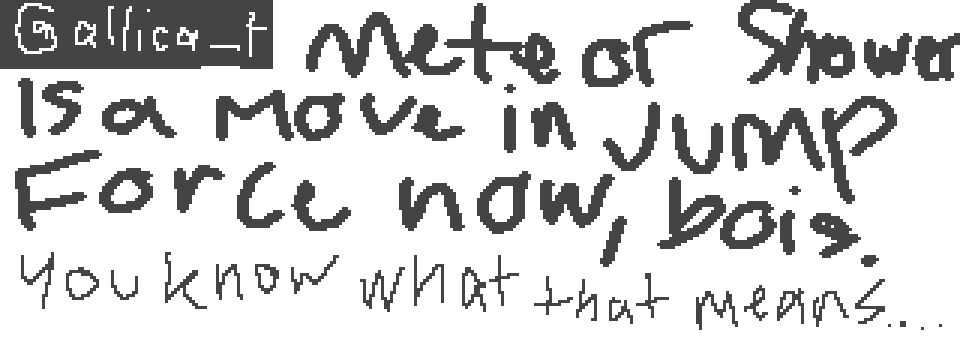 Gallica_t Meteor Shower
Is a move in Jump
Force now, bois.
You know what that means....